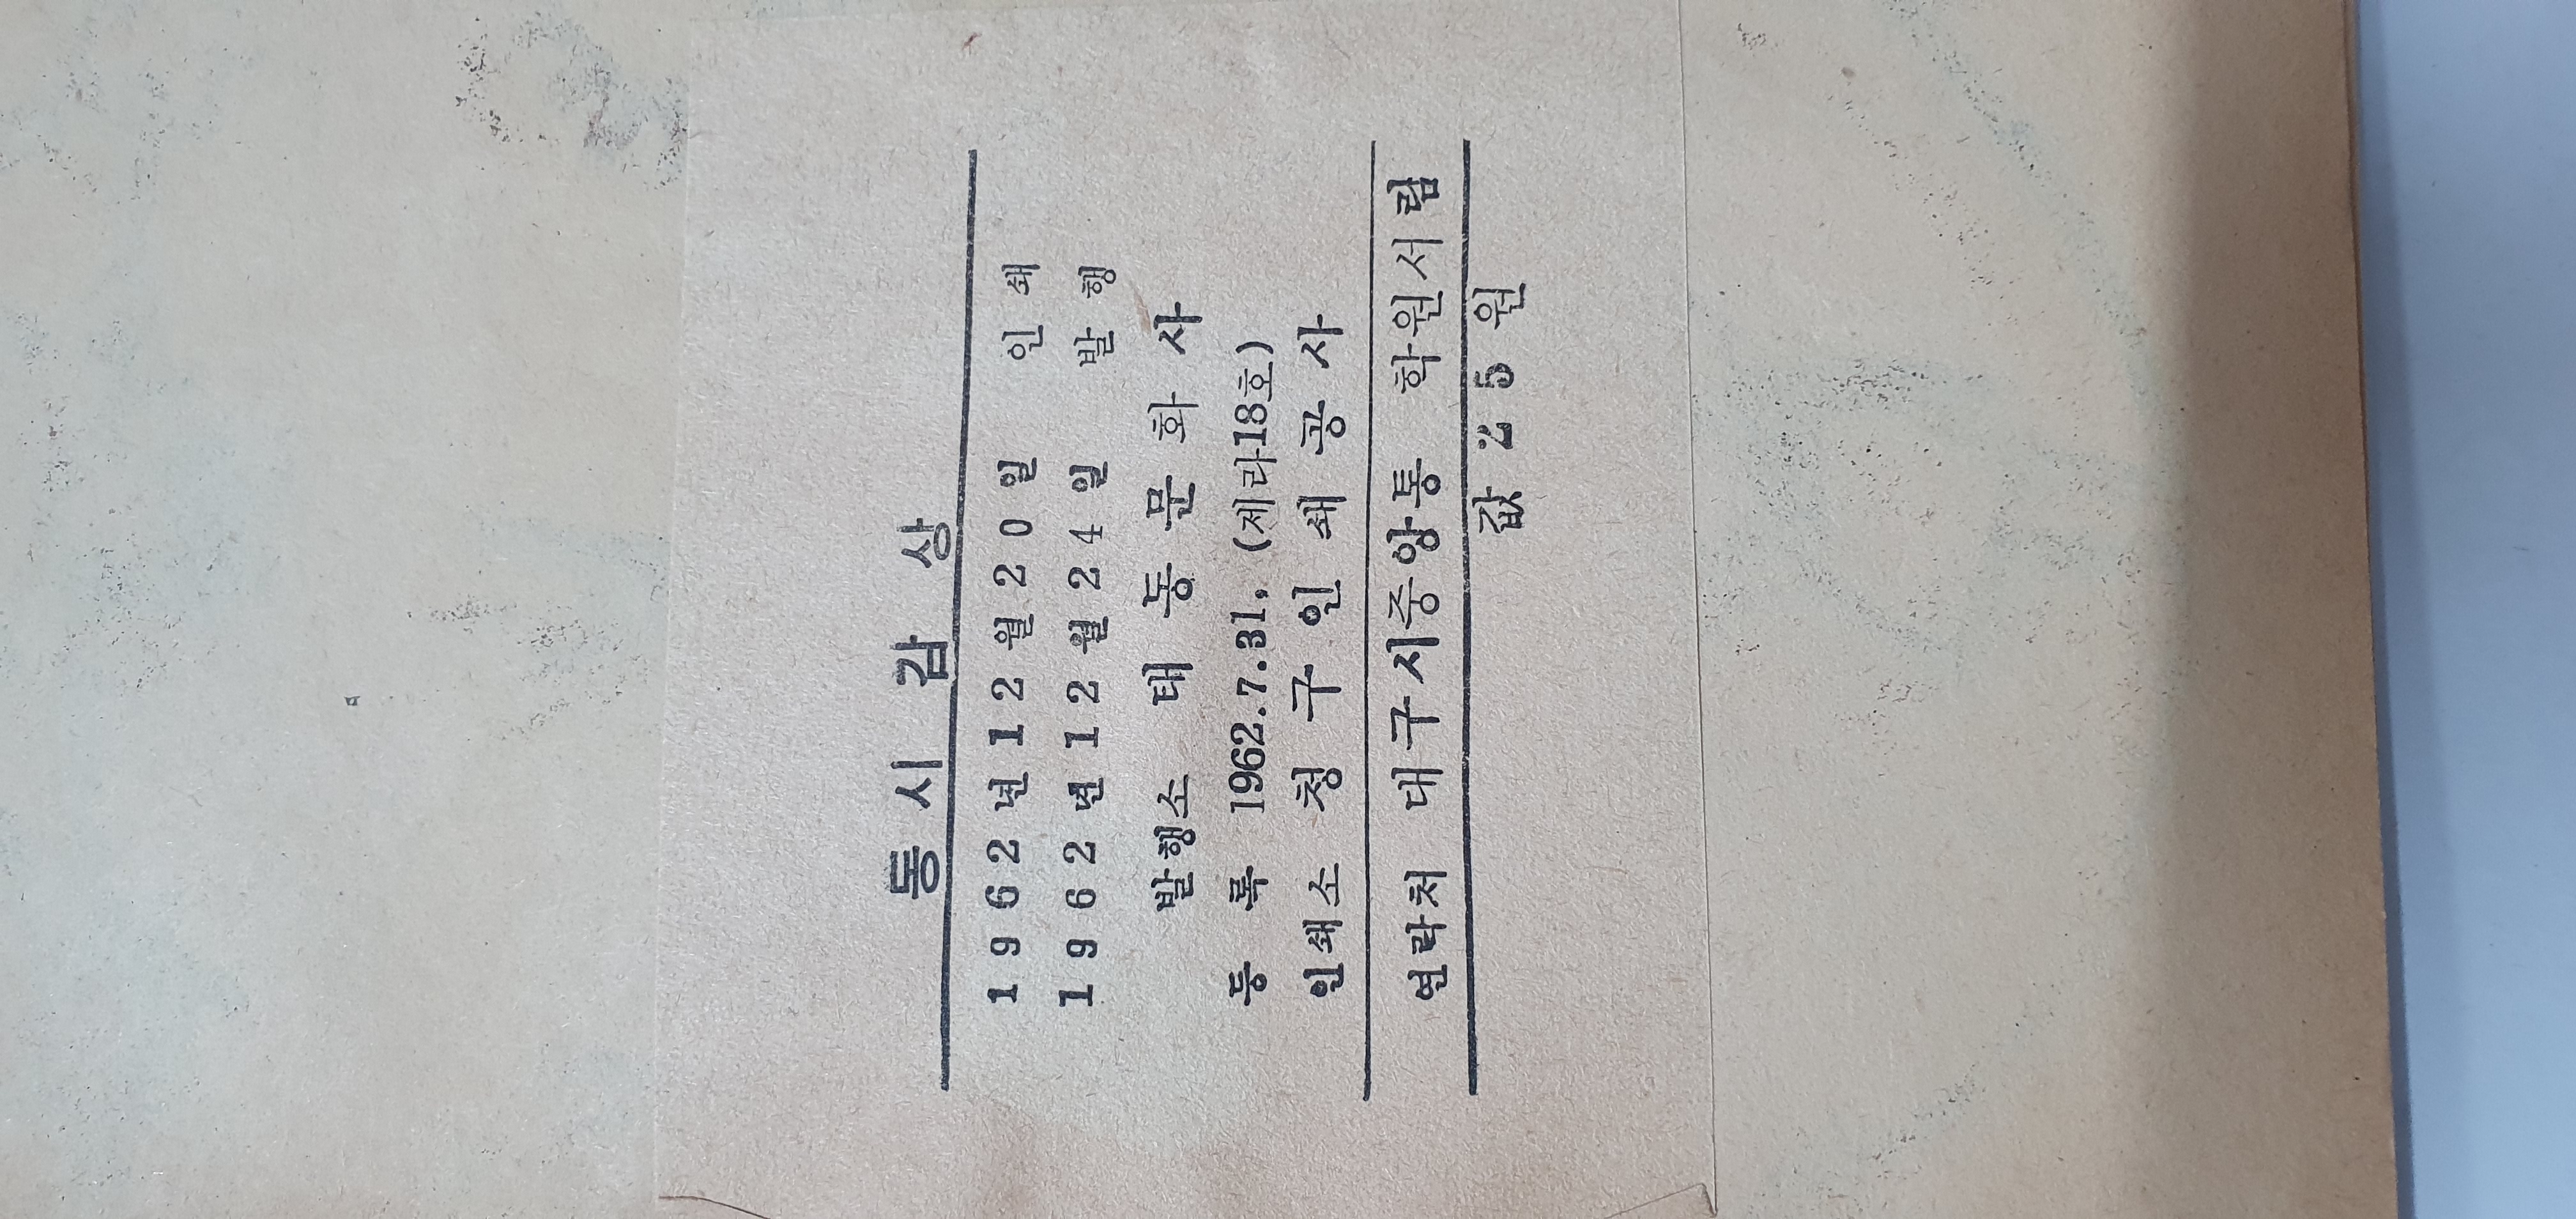 동시감상
1962년12월20일 인쇄
1962년12월24일 발행
발행소 태동문화사
등록 1962.7.31, (제라18호)
인쇄소 청구인쇄공사
연락처 대구시중앙통 학원서림
값 25원